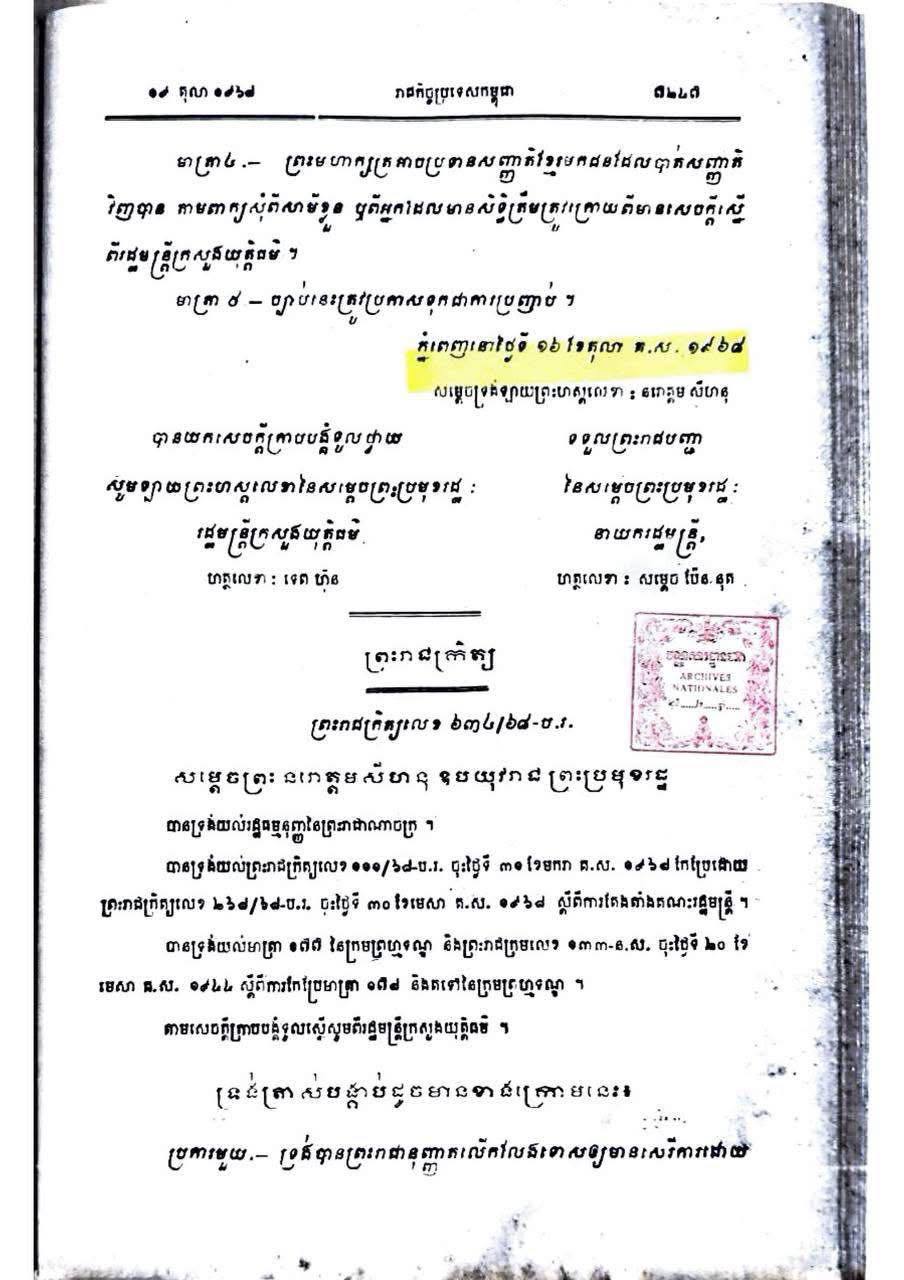 ១៩ តុលា ១៩៦៨ រាជកិច្ចប្រទេសកម្ពុជា ៧២៤៧
មាត្រា៤.— ព្រះមហាក្សត្រអាចប្រទានសញ្ជាតិខ្មែរមកជនដែលបាត់សញ្ជាតិ
វិញបាន តាមពាក្យសុំពីសាមីខ្លួន ឬពីអ្នកដែលមានសិទ្ធិត្រឹមត្រូវក្រោយពីមានសេចក្ដីស្នើ
ពីរដ្ឋមន្ត្រីក្រសួងយុត្តិធម៌ ។
មាត្រា ៥ — ច្បាប់នេះត្រូវប្រកាសទុកជាការប្រញាប់ ។
ភ្នំពេញនៅថ្ងៃទី ១៦ ខែតុលា គ.ស. ១៩៦៨
សម្ដេចទ្រង់ឡាយព្រះហស្តលេខា : នរោត្តម សីហនុ
បានយកសេចក្ដីក្រាបបង្គំទូលថ្វាយ ទទួលព្រះរាជបញ្ជា
សូមឡាយព្រះហស្តលេខានៃសម្ដេចព្រះប្រមុខរដ្ឋ : នៃសម្ដេចព្រះប្រមុខរដ្ឋ :
រដ្ឋមន្ត្រីក្រសួងយុត្តិធម៌ នាយករដ្ឋមន្ត្រី,
ហត្ថលេខា : ទេព ហ៊ុន ហត្ថលេខា : សម្ដេច ប៉ែន.នុត
ព្រះរាជក្រឹត្យ
ARCHIVES
NATIONALES
ព្រះរាជក្រឹត្យលេខ ៦៣៤/៦៨-ប.រ.
សម្ដេចព្រះ នរោត្តមសីហនុ ឧបយុវរាជ ព្រះប្រមុខរដ្ឋ
បានទ្រង់យល់រដ្ឋធម្មនុញ្ញនៃព្រះរាជាណាចក្រ ។
បានទ្រង់យល់ព្រះរាជក្រឹត្យលេខ ១១១/៦៨-ប.រ. ចុះថ្ងៃទី ៣១ ខែមករា គ.ស. ១៩៦៨ កែប្រែដោយ
ព្រះរាជក្រឹត្យលេខ ២៦៨/៦៨-ប.រ. ចុះថ្ងៃទី ៣០ ខែមេសា គ.ស. ១៩៦៨ ស្ដីពីការតែងតាំងគណៈរដ្ឋមន្ត្រី ។
បានទ្រង់យល់មាត្រា ១៧៧ នៃក្រមព្រហ្មទណ្ឌ និងព្រះរាជក្រមលេខ ១៣៣-ន.ស. ចុះថ្ងៃទី ២០ ខែ
មេសា គ.ស. ១៩៤៤ ស្ដីពីការកែប្រែមាត្រា ១៧៨ និងតទៅនៃក្រមព្រហ្មទណ្ឌ ។
តាមសេចក្ដីក្រាបបង្គំទូលស្នើសូមពីរដ្ឋមន្ត្រីក្រសួងយុត្តិធម៌ ។
ទ្រង់ត្រាស់បង្គាប់ដូចមានខាងក្រោមនេះ៖
ប្រការមួយ.— ទ្រង់បានព្រះរាជានុញ្ញាតលើកលែងទោសឲ្យមានសេរីការដោយ